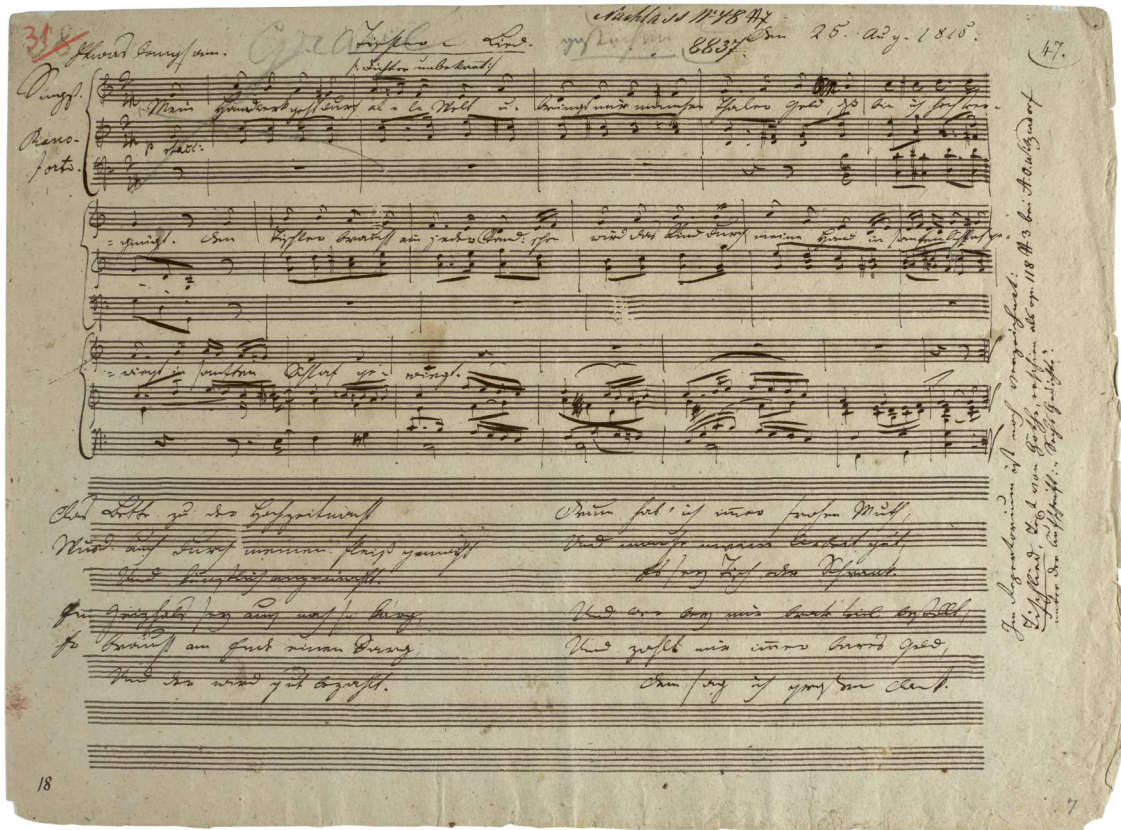 31
Nachlass № 48 #7
Etwas langsam.
Tischler-Lied.
gestochen
8837.
den 25. Aug. 1815.
47.
/: Dichter unbekannt :/
Singst.
Mein Handwerk geht durch al-le Welt u. bringt mir manchen Thaler Geld, deß bin ich hoch ver-
Piano-
forte.
p stacc:
=gnügt. Den Tischler braucht ein jeder Stand: schon wird das Kind durch meine Hand in sanften Schlaf ge-
=wiegt in sanften Schlaf ge-wiegt.
Das Bette zu der Hochzeitnacht
Wird auch durch meinen Fleiß gemacht
Und künstlich angemahlt.
Ein Geizhals sey auch noch so karg,
Er braucht am End einen Sarg,
Und der wird gut bezahlt.
Drum hab' ich immer frohen Muth,
Und mache meine Arbeit gut,
Es sey Tisch oder Schrank.
Und wer bey mir brav viel bestellt,
Und zahlt mir immer bares Geld,
Dem sag ich großen Dank.
Im Repertorium ist noch verzeichnet:
Tischlied, Ged. von Göthe, erschien als op. 118 #3 bei A. O. Witzendorf
unter der Aufschrift: Sechs Gedichte:
18
7